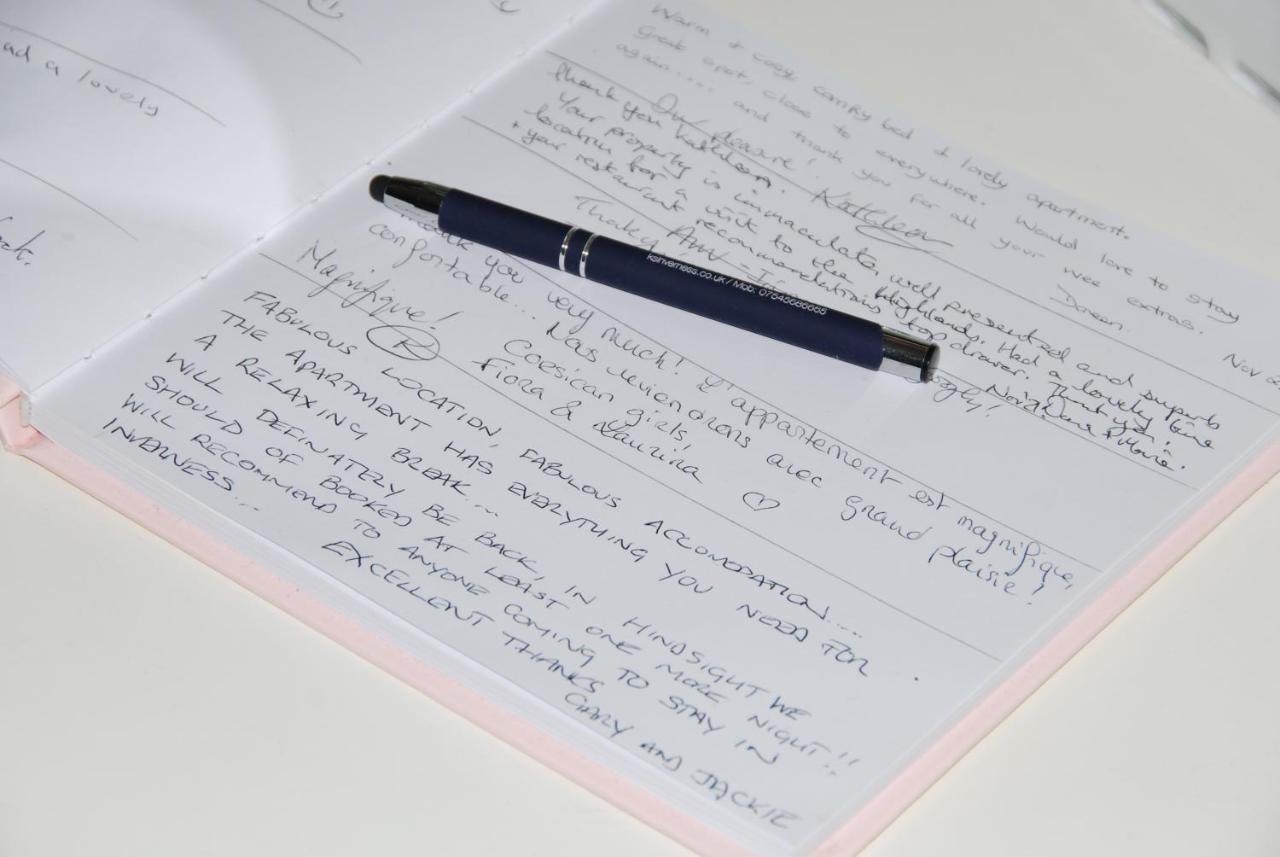 ad a lovely
Warm + cosy comfy bed + lovely apartment.
great spot, close to everywhere. Would love to stay
again.... and thank you for all your wee extras.
Doreen. Nov
Our pleasure! Kathleen
Thank you Kathleen.
Your property is immaculate, well presented and superb
location for a visit to the Highland. Had a lovely time
+ your restaurant recommendations top drawer. Thank you!
ksinverness.co.uk / Mob. 07545686655
Thank you very much! L'appartement est magnifique,
confortable... Nous reviendrons avec grand plaisir!
Corsican girls,
Fiora & Laurina ♡
Magnifique!
R
FABULOUS LOCATION, FABULOUS ACCOMODATION....
THE APARTMENT HAS EVERYTHING YOU NEED FOR
A RELAXING BREAK...
WILL DEFINATELY BE BACK, IN HINDSIGHT WE
SHOULD OF BOOKED AT LEAST ONE MORE NIGHT!!
WILL RECOMMEND TO ANYONE COMING TO STAY IN
INVERNESS...
EXCELLENT THANKS
GARY AND JACKIE